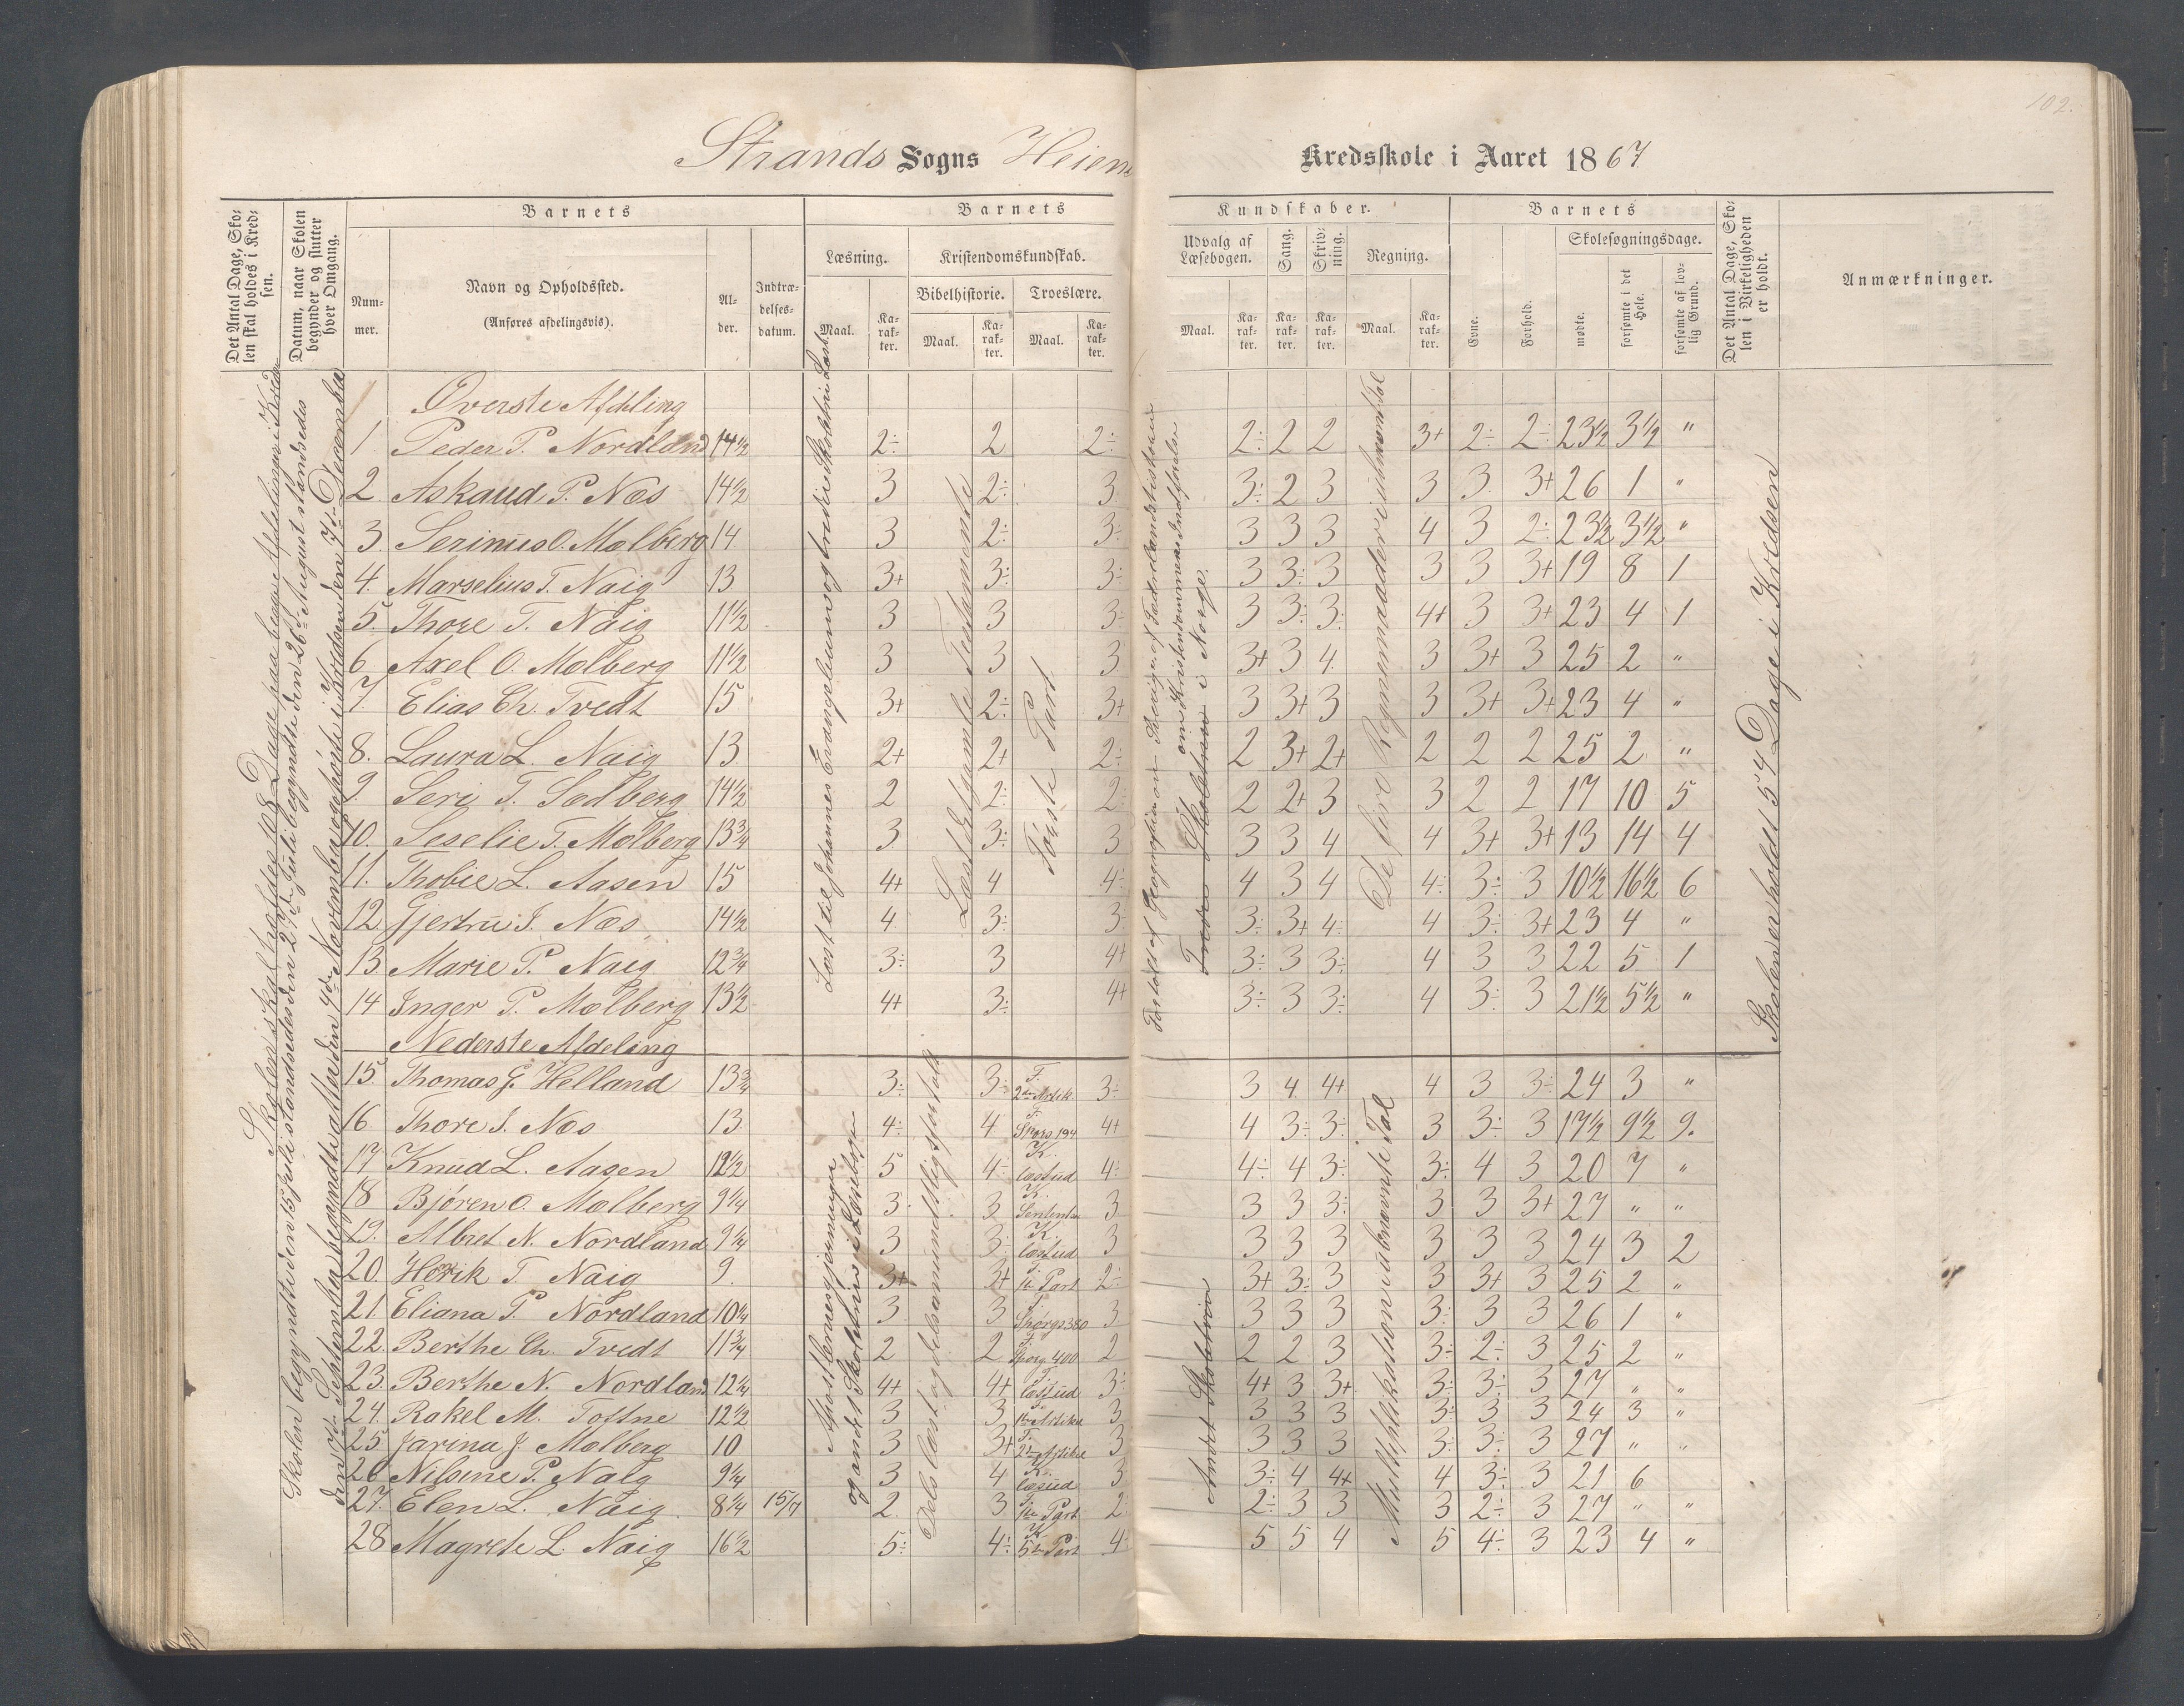 102.
Strands Sogns Heiens Kredsskole i Aaret 1867
Det Antal Dage, Skolen skal holdes i Kredsen.
Datum, naar Skolen begynder og slutter hver Omgang.
Barnets
Nummer.
Navn og Opholdssted.
(Anføres afdelingsvis).
Alder.
Indtrædelsesdatum.
Barnets Kundskaber.
Læsning.
Maal.
Karakter.
Kristendomskundskab.
Bibelhistorie.
Maal.
Karakter.
Troeslære.
Maal.
Karakter.
Udvalg af Læsebogen.
Maal.
Karakter.
Sang.
Karakter.
Skrivning.
Karakter.
Regning.
Maal.
Karakter.
Barnets
Evne.
Forhold.
Skolesøgningsdage.
mødte.
forsømte i det Hele.
forsømte af lovlig Grund.
Det Antal Dage, Skolen i Virkeligheden er holdt.
Anmærkninger.
Skolen skal holdes 108 Dage paa begge Afdelinger i Kredsen
Skolen begyndte den 15 Juli standsedes den 27 Juli begyndte den 26 August standsedes
den 7 Septemba begyndte atter den 4de November ophørte i Kredsen den 7d December
Øverste Afdeling
1 Peder P. Nordland 14½ 2÷ 2 2÷ 2÷ 2 2 3+ 2÷ 2÷ 23½ 3½ "
2 Askaud P. Næs 14½ 3 2÷ 3 3÷ 2 3 3 3 3+ 26 1 "
3. Serinus O. Mølberg 14 3 2÷ 3÷ 3 3 3 4 3 2÷ 23½ 3½ "
4. Marselius T. Naig 13 3+ 3÷ 3÷ 3 3÷ 3 3 3 3+ 19 8 1
5. Thore T. Naig 11½ 3 3 3÷ 3 3÷ 3÷ 4+ 3 3+ 23 4 1
6 Axel O. Mølberg 11½ 3 3 3 3+ 3 4. 3 3+ 3 25 2 "
7. Elias Ch. Tvedt 15 3+ 2÷ 3+ 3 3+ 3 3 3+ 3+ 23 4 "
8. Laura L. Naig 13 2+ 2+ 2÷ 2 3+ 2+ 2 2 2 25 2 "
9. Seri T. Sødberg 14½ 2 2÷ 2÷ 2 2+ 3 3 2 2 17 10 5
10. Seselie T. Mølberg 13¾ 3 3÷ 3 3 3 4 4 3+ 3+ 13 14 4
11. Thobie L. Aasen 15 4+ 4 4÷ 4 3 4 4÷ 3÷ 3 10½ 16½ 6
12. Gjertru J. Næs 14½ 4. 3÷ 3 3÷ 3+ 4÷ 4 3÷ 3+ 23 4 "
13. Marie P. Naig 12¾ 3÷ 3 4+ 3÷ 3 3÷ 4 3 3 22 5 1
14 Inger P. Mølberg 13½ 4+ 3÷ 4+ 3÷ 3 3÷ 4 3÷ 3 21½ 5½ "
Læst til Johannes Evangelium og tredie Skoletrin i Læseb.
Læst det gamle Testamente
Første Part
Fortalt af Geografien Sverige, af Fædrelandshistorien
om Kristendommens Indførelse
i Norge.
De fire Regnemaader i ubenævnte Tal
Skolen er holdt 54 Dage i Kredsen
Nederste Afdeling
15. Thomas G. Helland 13¾ 3÷ 3÷ F. 2den Artik. 3÷ 3 4 4+ 4 3 3÷ 24 3 "
16 Thore J. Næs 13 4÷ 4 F. Spørs 194 4+ 4 3÷ 3÷ 3 3÷ 3 17½ 9½ 9.
17 Knud L. Aasen 12½ 5 4÷ K. læst ud 4÷ 4÷ 4 3÷ 3÷ 4 3 20 7 "
18 Bjøren O. Mølberg 9¼ 3 3 K. 3 3 3 3÷ 3 3 3+ 27 " "
19. Albret N. Nordland 9¼ 3 3÷ K. læst ud 3 3 3 3 3 3 3 24 3 2
20. Henrik T Naig 9. 3+ 3+ F. 1te Part 2÷ 3+ 3÷ 3 3 3+ 3 25 2 "
21. Eliana P. Nordland 10¼ 3 3 F. Spørgs 380 3 3 3 3 3÷ 3 3 26 1 "
22. Berthe Ch. Tvedt 11¾ 2 2 F. Spørg 400 2 2 2 3 3÷ 2÷ 3 25 2 "
23. Berthe N. Nordland 12¼ 4+ 4+ F. læst ud 3÷ 4+ 3 3+ 3÷ 3÷ 3 27 " "
24. Rakel M. Toftne 12½ 3 3 F. 1te Artikel 3 3 3 3 3÷ 3 3 24 3 "
25 Jarina J. Mølberg 10 3 3+ F. 2den Artikel 3 3 3 3 3÷ 3÷ 3 27 " "
26 Nilsine P. Naig 9¼ 3 4 K. læs ud 3 3÷ 4 4+ 4 3÷ 3 21 6
27. Elen L. Naig 8¼ 15/7 2. 3 F. 1te Part 2÷ 2÷ 3 3 3 2÷ 3 27 " "
28 Magrete L. Naig 16½ 5÷ 4÷ K. 5te Part 4÷ 5 5 4 5 4÷ 3 23 4 "
Apostlernes gjerninger
og andet Skoletrin i Læsebogen
Dels læst og dels mundtligt fortalt
Andet Skoletrin
Multiplikation i ubenævnte Tal